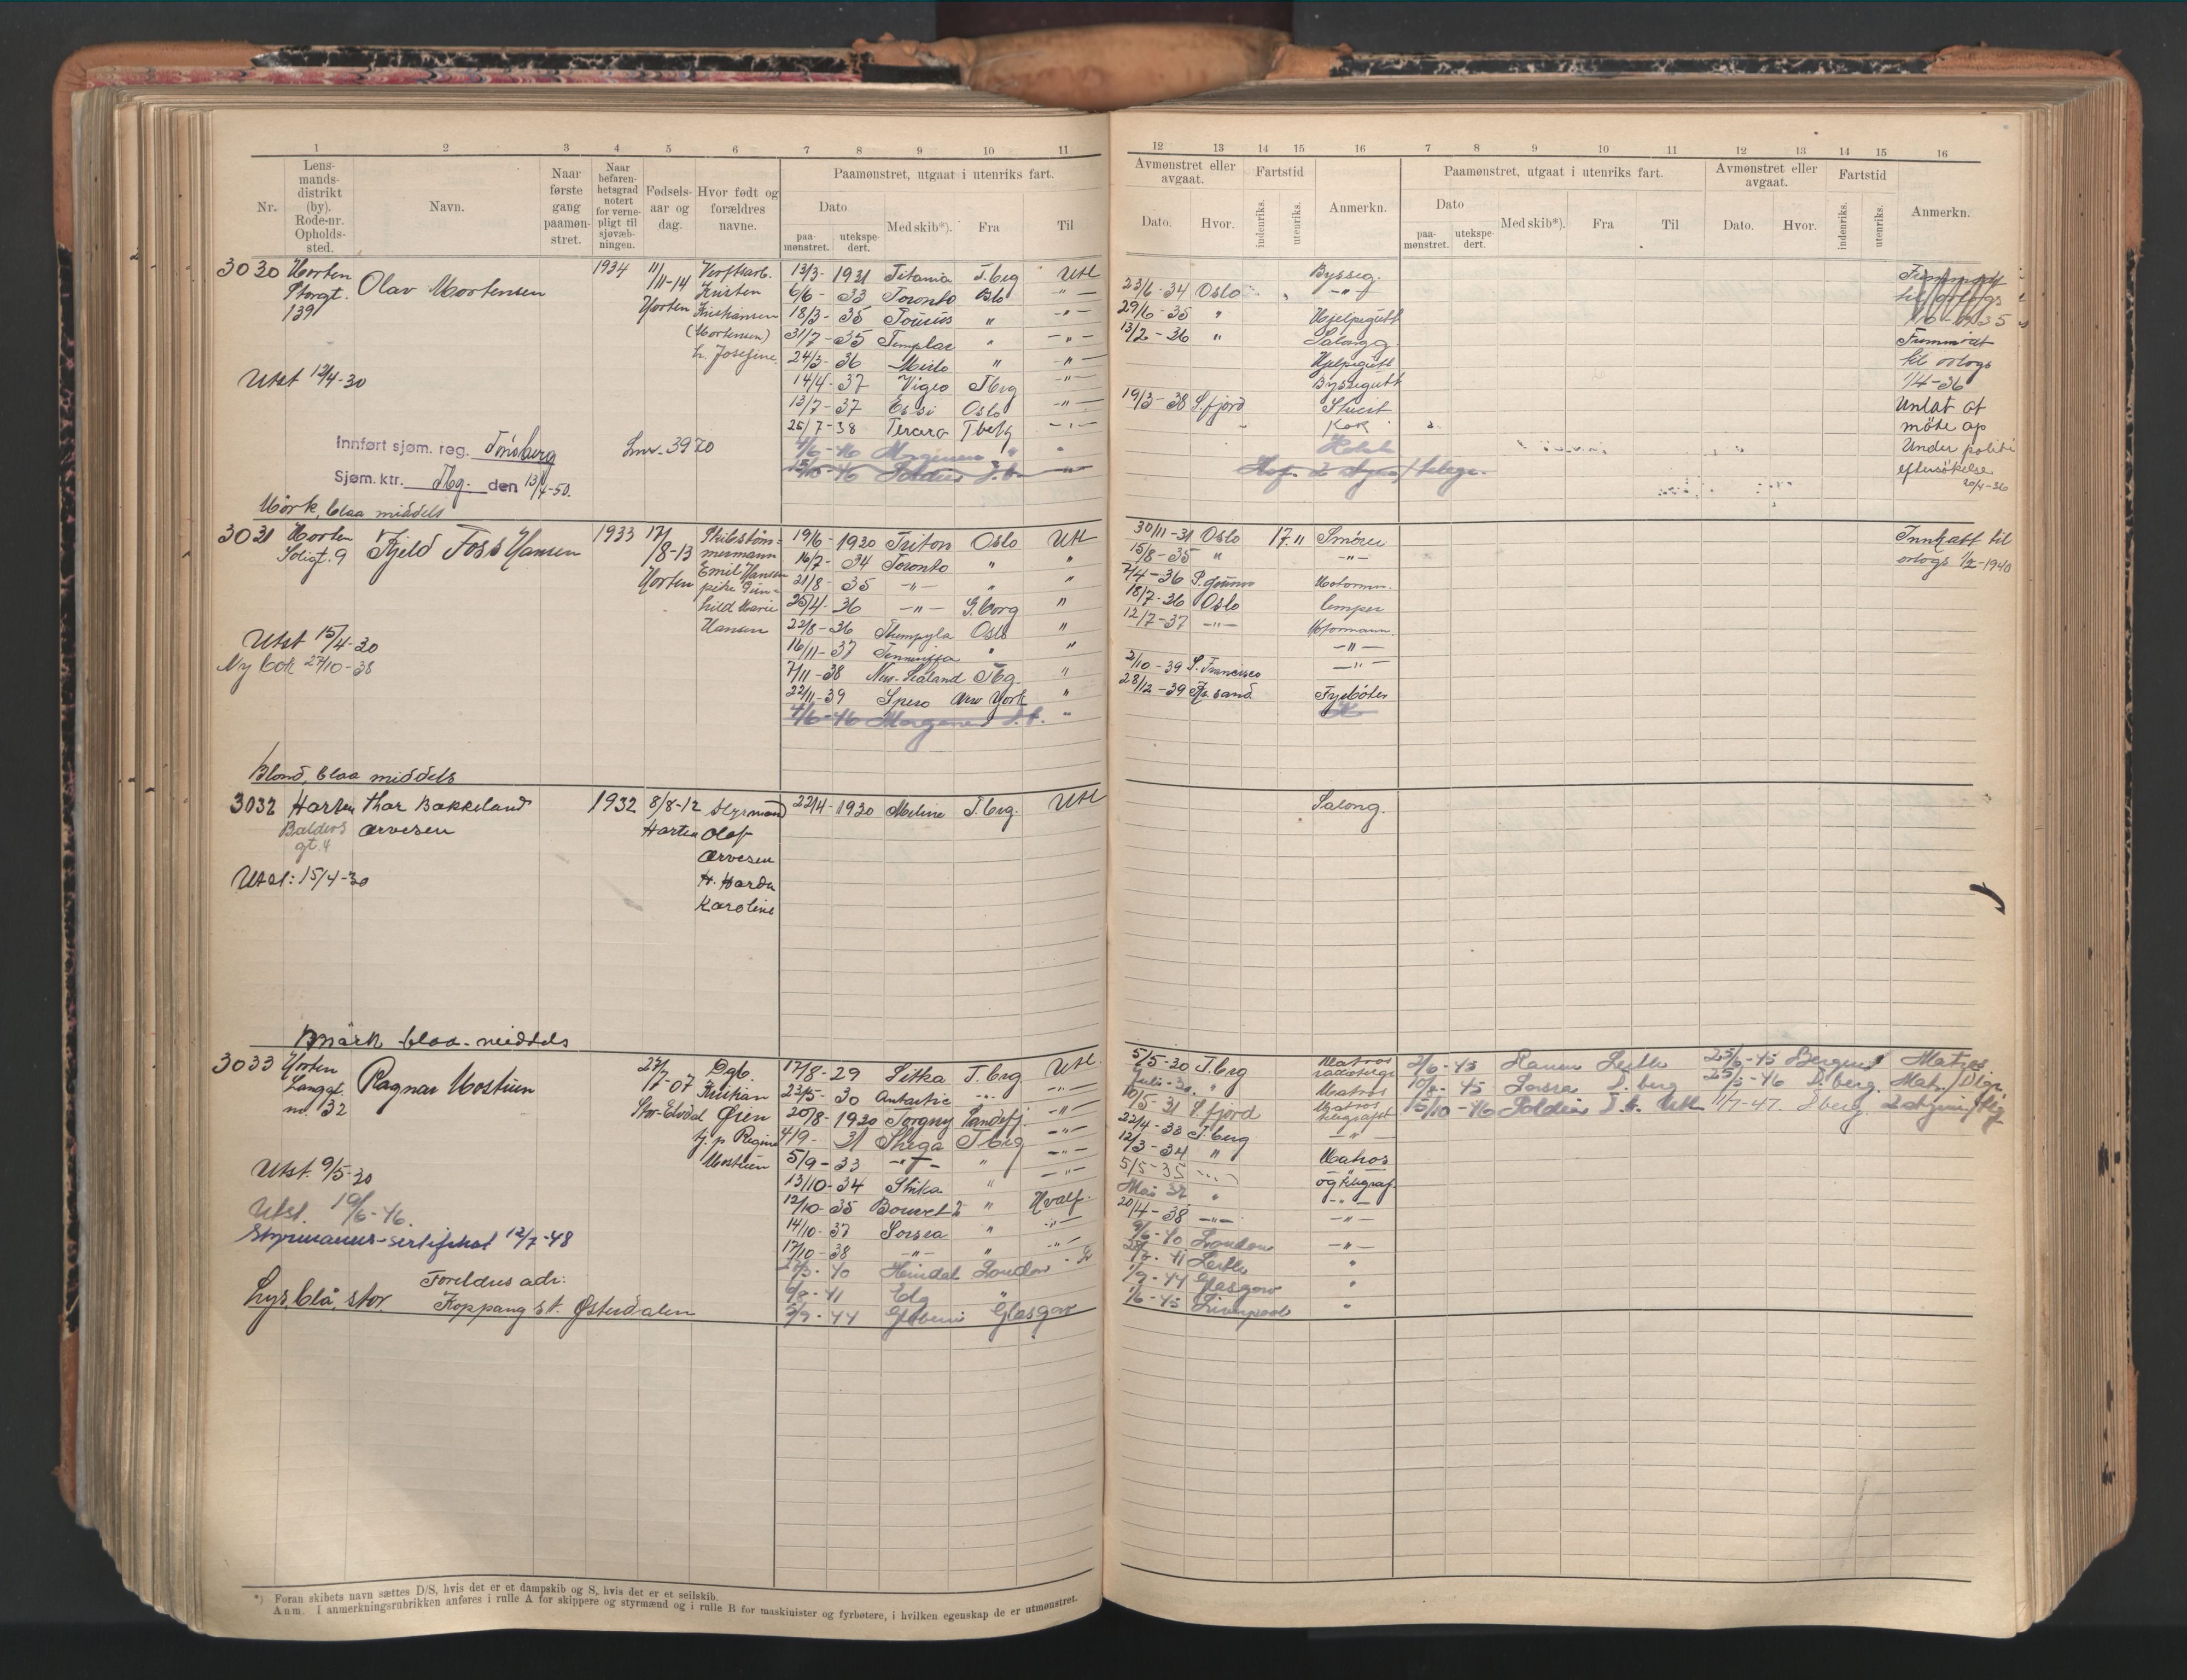 1 2 3 4 5 6 7 8 9 10 11
Nr.
Lens-mands-distrikt (by). Rode-nr. Opholds-sted.
Navn.
Naar første gang paamøn-stret.
Naar befaren-hetsgrad notert for verne-pligt til sjøvæb-ningen.
Fødsels-aar og dag.
Hvor født og forældres navne.
Paamønstret, utgaat i utenriks fart.
Dato
paa-mønstret.
utekspe-dert.
Med skib*).
Fra
Til
12 13 14 15 16 7 8 9 10 11 12 13 14 15 16
Avmønstret eller avgaat.
Dato.
Hvor.
Fartstid
indenriks.
utenriks.
Anmerkn.
Paamønstret, utgaat i utenriks fart.
Dato
paa-mønstret.
utekspe-dert.
Med skib*).
Fra
Til
Avmønstret eller avgaat.
Dato.
Hvor.
Fartstid
indenriks.
utenriks.
Anmerkn.
3030 Horten Olav Mortensen 1934 11/11-14
Storgt. 139
Horten
Kristen
Kristiansen
(Mortensen)
h. Josefine
13/3-1931 Titania T.berg Utl
6/6-33 Toronto Oslo -"-
18/3-35 " -"-
31/7-35 Templar " -"-
24/3-36 " -"-
14/4-37 Vigeo Tbrg -"-
13/7-37 Essi Oslo -"-
25/7-38 Tercero Tberg -"-
4/6-46 "
15/10-46
Utst 12/4-30
Innført sjøm. reg. Tønsberg Lnr. 3970
Sjøm. ktr. Tbg. den 13/4-50.
Mørk, blaa middels
Bysseg.
23/6-34 Oslo -"-
29/6-35 " Hjelpegutt
13/2-36 " Salongg.
Hjelpegutt
Byssegutt
19/3-38 S.fjord Stuert
Kok
til orlogs
til orlogs
1/4-36
Unlat at
møte op
Under politi
eftersøkelse
20/4-36
3031 Horten Kjeld Foss Hansen 1933 17/8-13
Soligt. 9
Horten
Skibstøm-
mermann
Emil Hansen
pike Gun-
hild Marie
Hansen
19/6-1930 Triton Oslo Utl
16/7-34 Toronto " "
21/8-35 -"- " "
25/4-36 -"- G.borg "
22/8-36 Oslo "
16/11-37 " "
7/11-38 New-Sealand Tbg. "
22/11-39 Spero New York "
4/6-46 "
Utst 15/4-30
Ny bok 27/10-38
Blond, blaa middels
30/11-31 Oslo 17.11 Smører
15/8-35 " -"-
7/4-36 Motorm.
18/7-36 Oslo lemper
12/7-37 -"- Motormann.
-"-
2/10-39 S. Francisco -"-
28/12-39 Kr.sand Fyrbøter
Innkalt til
orlogs 1/2-1940
3032 Horten Thor Bakkeland 1932 8/8-12 Styrmand
Balders gt. 4
Arvesen
Horten Olaf
Arvesen
Karoline
22/4-1930 T.brg. Utl
Salong.
Utst: 15/4-30
Mörk blaa middels
3033 Horten Ragnar Mostuen 27/7-07
Langgt.
no. 32
Stor-Elvdal
Kristian
Øien
Regine
Mostuen
17/8-29 Sitka T.brg Utl.
22/5-30 Antarctic -"- -"-
20/8-1930 Torgny Sandefj. -"-
4/9-31 T.brg -"-
5/9-33 -"- " -"-
13/10-34 " -"-
12/10-35 Bouvet 2 " Hvalf.
14/10-37 Sorsra " -"-
17/10-38 -"- " -"-
Heimdal London
6/8-41 "
2/9-44 Glasgow
Utst. 9/5-30
Utst. 19/6-46.
Styrmanns-sertifikat 12/7-48
Foreldres adr:
Lys, blå, stor. Koppang st. Østerdalen
5/5-30 T.brg Matros
Juli-30 " Matros
10/5-31 S.fjord Matros
22/4-33 T.brg -"-
12/3-34 " Matros
5/5-35 og telegraf.
Mai 37 " -"-
20/4-38 -"- -"-
9/6-40 London -"-
41 Leith "
1/9-44 Glasgow "
1/6-45 Liverpool "
2/6-45 Leith 25/6-45 Bergen Matros
45 Sorsra T.berg 46 T.berg.
15/10-46 T.b. Utl. 11/7-47 Tberg
*) Foran skibets navn sættes D/S, hvis det er et dampskib og S, hvis det er et seilskib.
Anm. I anmerkningsrubrikken anføres i rulle A for skippere og styrmænd og i rulle B for maskinister og fyrbøtere, i hvilken egenskap de er utmønstret.